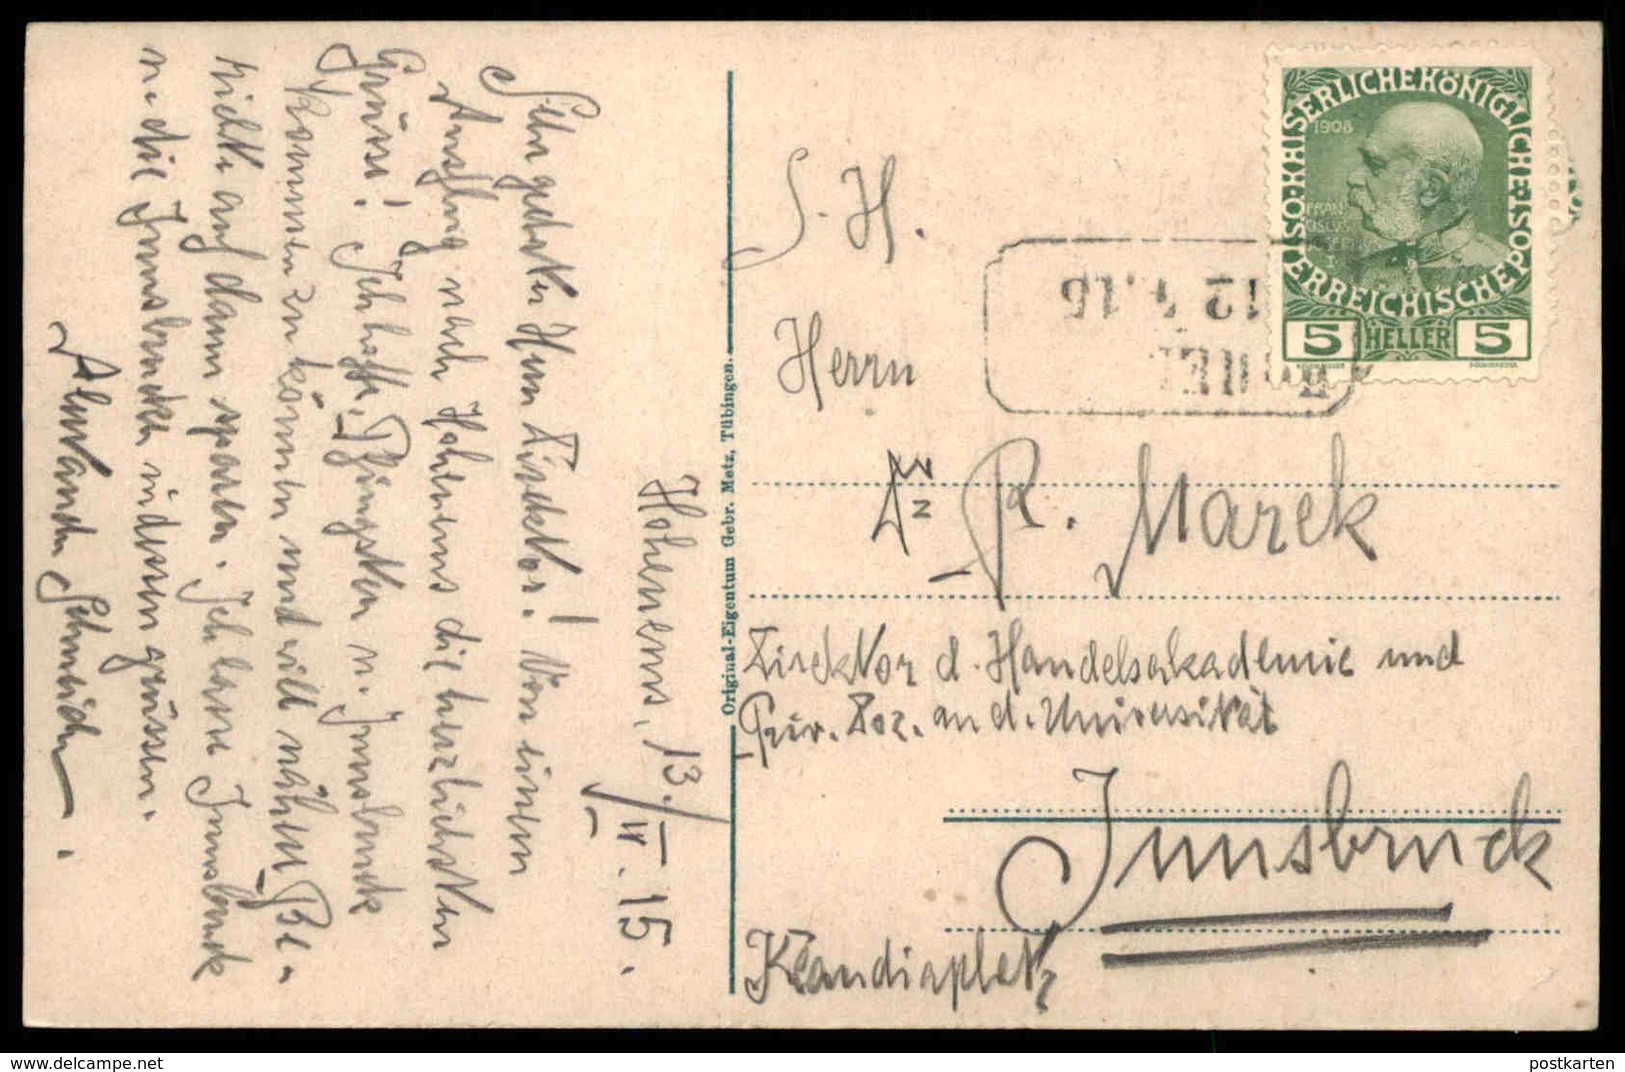 Hohenems, 13./IV. 15.
Sehr geehrter Herr Direktor! Von einem
Ausflug nach Hohenems die herzlichsten
Grüsse! Ich hoffe, Pfingsten n. Innsbruck
kommen zu können und will nähere Be-
richte auf dann sparen. Ich lasse Innsbruck
u. die Innsbrucker indessen grüssen.
Schneider.
Original-Eigentum Gebr. Metz, Tübingen.
S. H.
Herrn
Dr R. Marek
Direktor d. Handelsakademie und
Priv. Doz. an d. Universität
Innsbruck
Klaudiaplatz
KAISERLICHE KÖNIGLICHE
ÖSTERREICHISCHE POST
1908
FRAN
CISCVS
5 HELLER 5
12 15
postkarten
www.delcampe.net